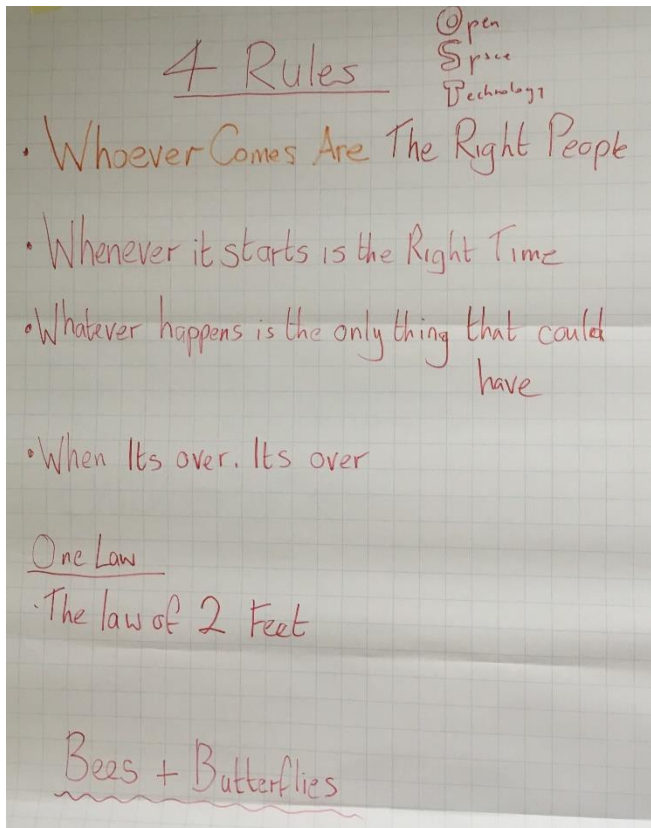 4 Rules
Open
Space
Technology
• Whoever Comes Are The Right People
• Whenever it starts is the Right Time
• Whatever happens is the only thing that could
have
• When Its over. Its over
One Law
• The law of 2 Feet
Bees + Butterflies